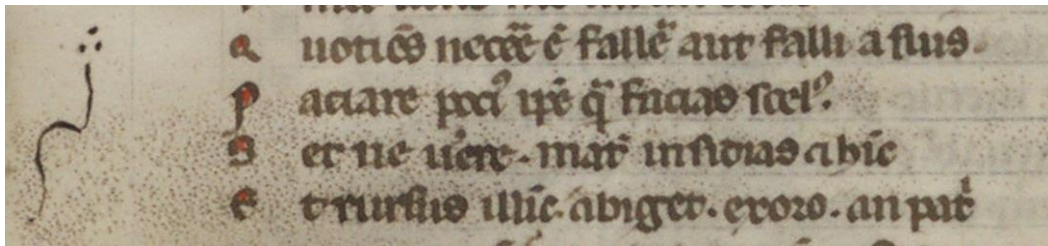 Q uotiēs necēē ē fallē aut falli a suis.
P aciare pociꝰ ipē q̄ facias scelꝰ.
S et ne uere. mat̄ insidias & hīc
E t rursus illīc. abiget. exoro. an pat̄